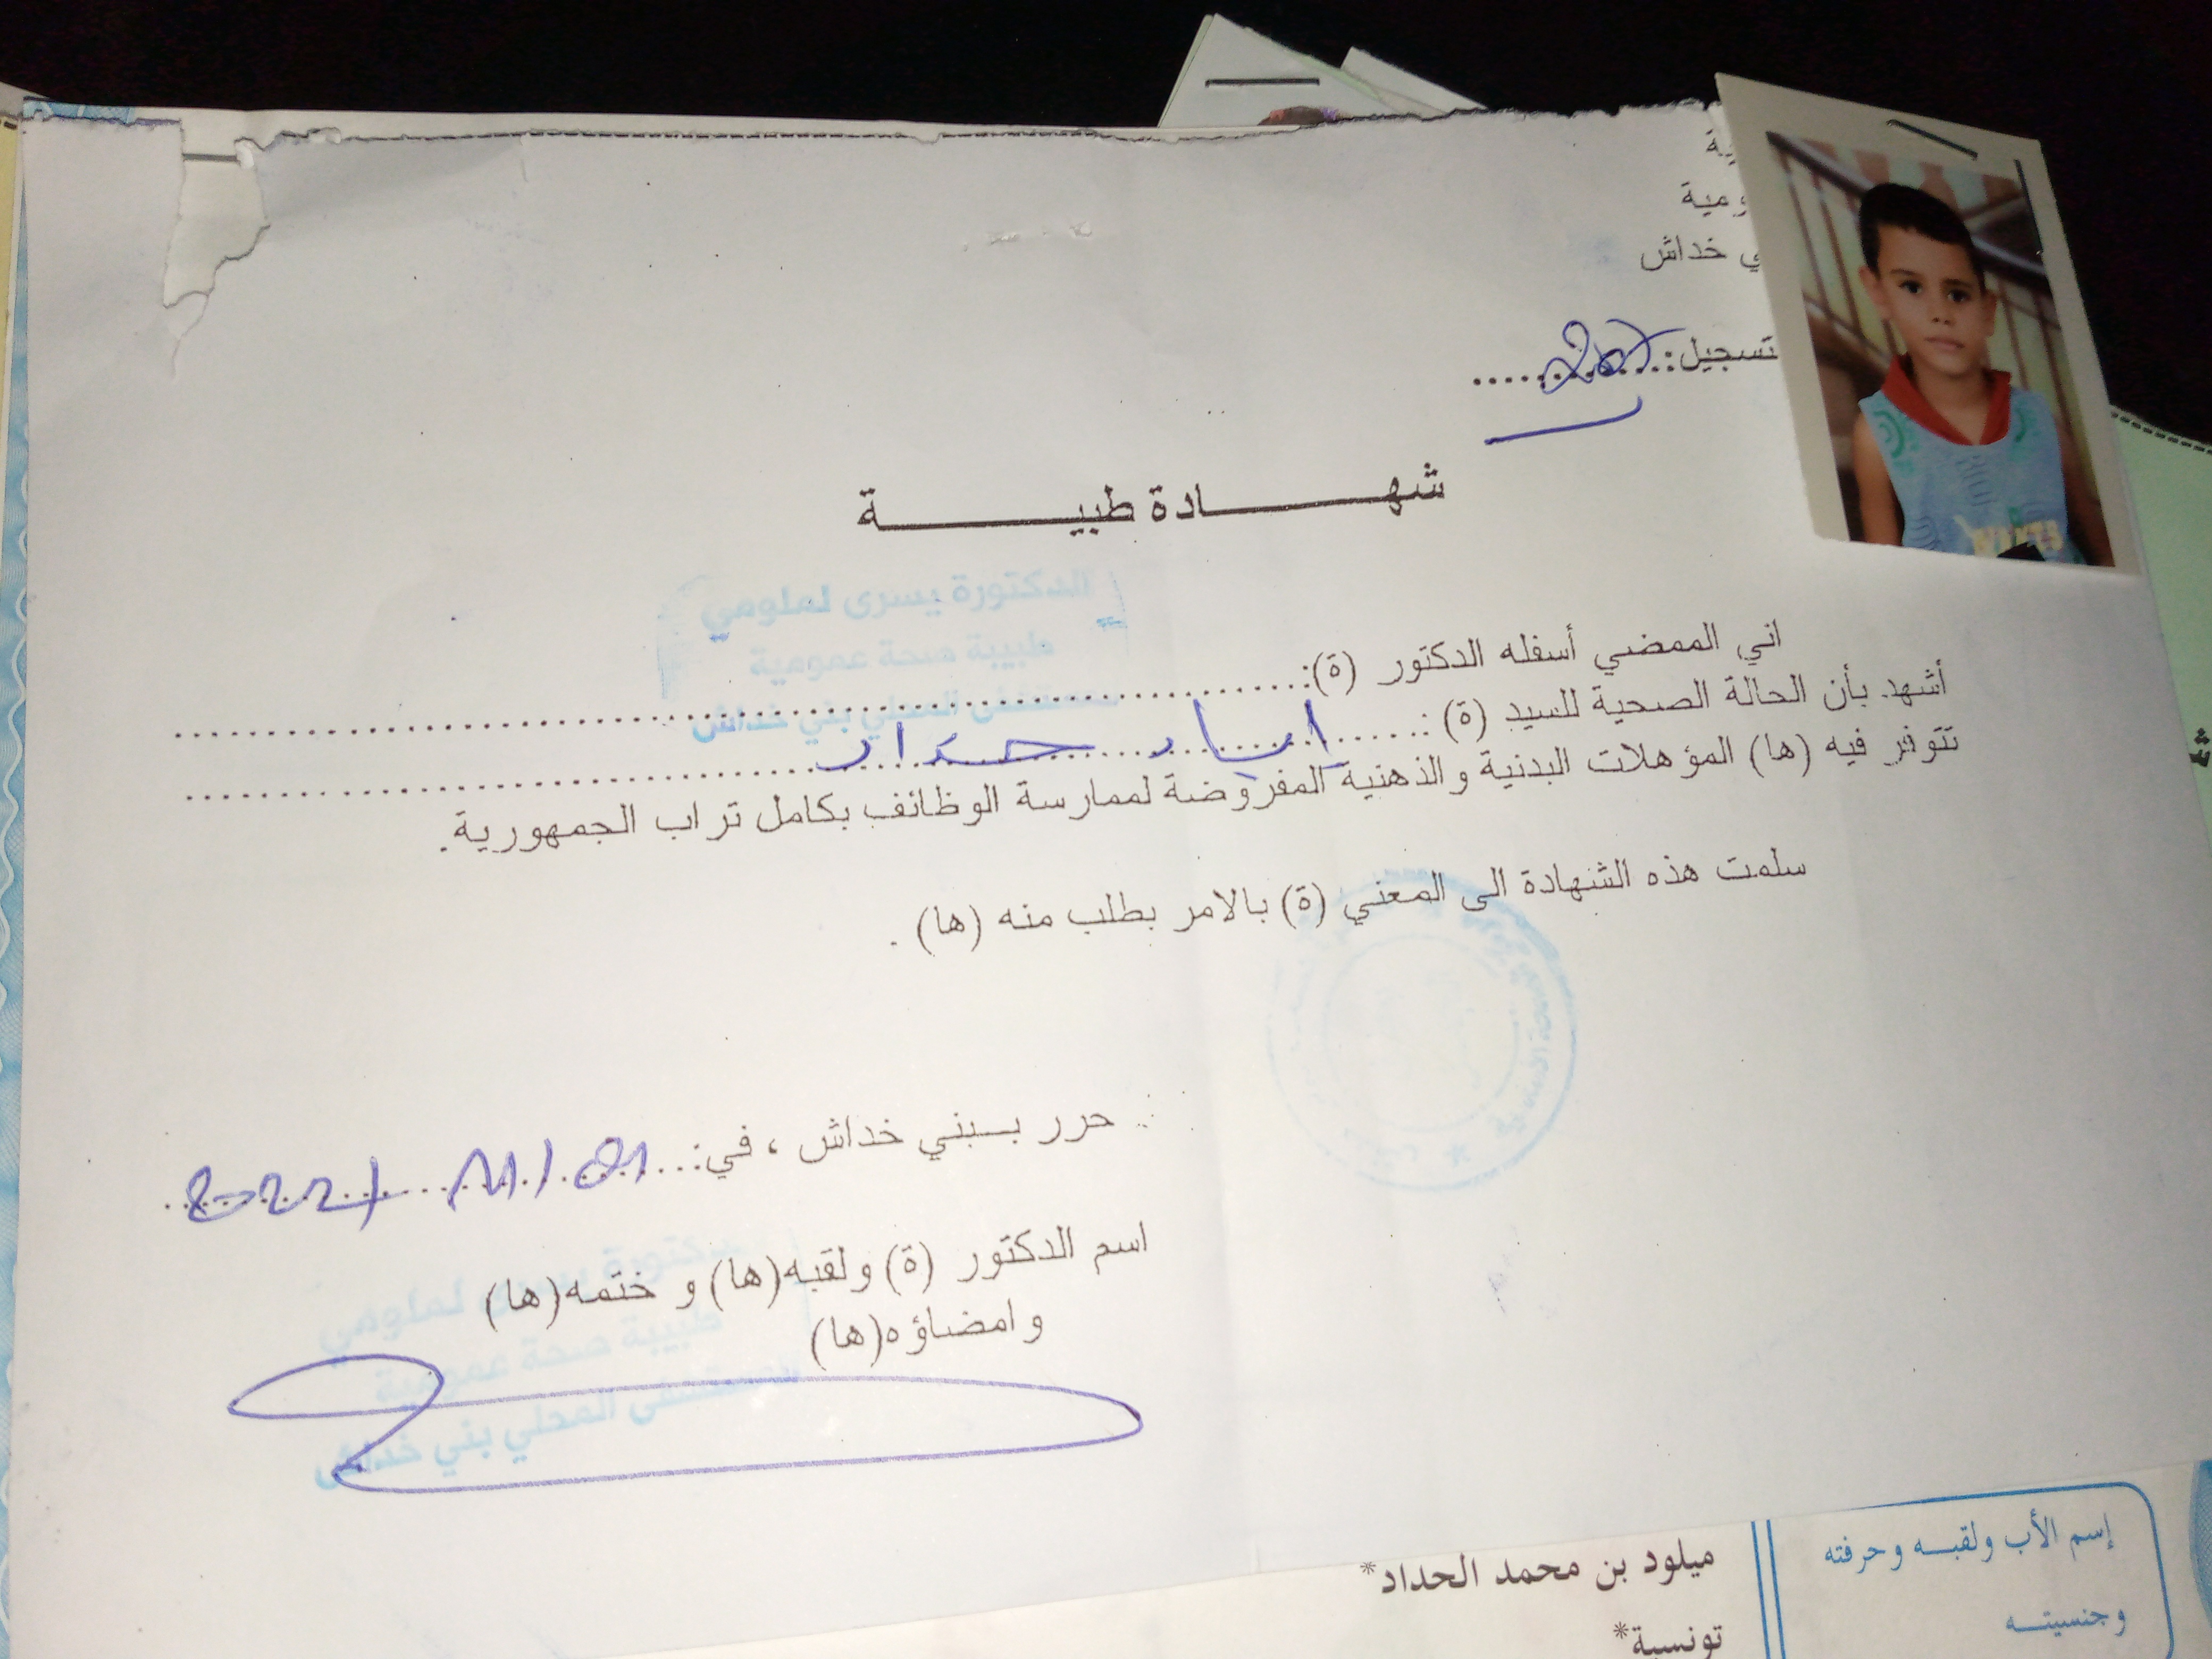 ومية
ي خداش
تسجيل:
شهادة طبية
الدكتورة يسرى لملومي
طبيبة صحة عمومية
المحلي بني خداش
اني الممضي أسفله الدكتور (ة):
أشهد بأن الحالة الصحية للسيد (ة):
تتوفر فيه (ها) المؤهلات البدنية والذهنية المفروضة لممارسة الوظائف بكامل تراب الجمهورية.
سلمت هذه الشهادة الى المعني (ة) بالامر بطلب منه (ها).
حرر ببني خداش، في:
اسم الدكتور (ة) ولقبه(ها) و ختمه(ها)
وامضاؤه(ها)
لملومي
طبيبة صحة عمومية
المحلي بني خداش
إسم الأب ولقبه وحرفته
ميلود بن محمد الحداد*
وجنسيته
تونسية*